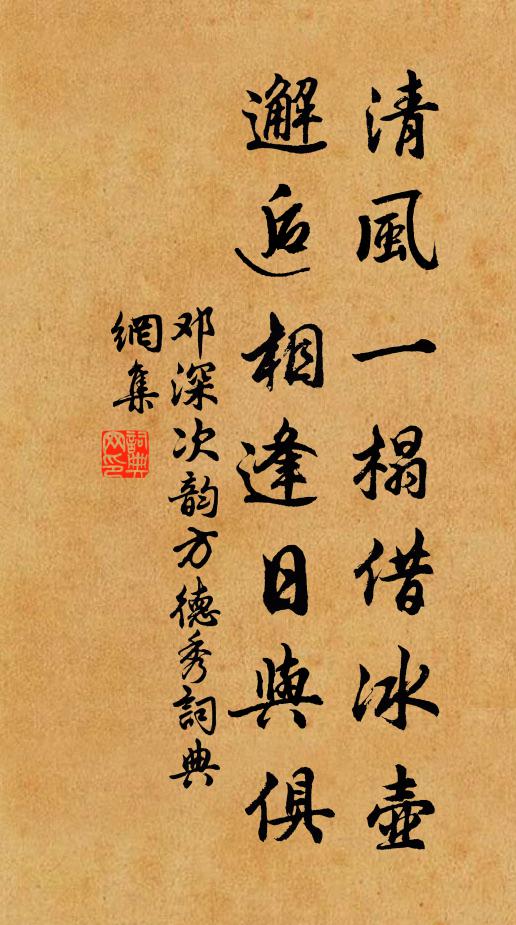 清風一榻借冰壺
邂逅相逢日與俱
邓深次韵方德秀詞典
網集
詞典
网印